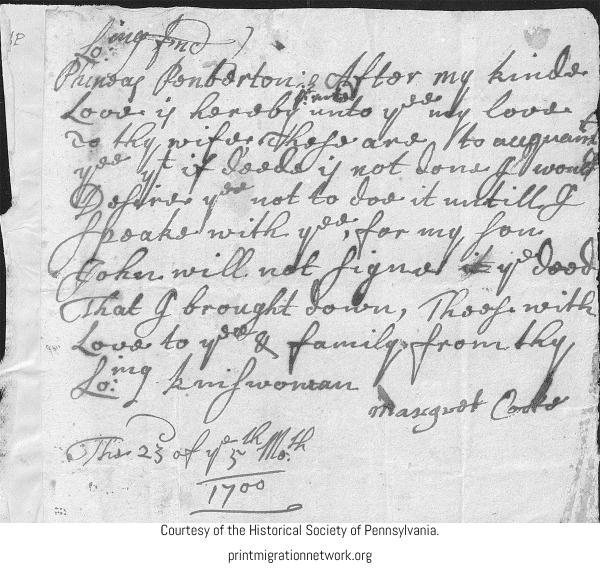 Lo:ing frnd
Phineas Pemberton: After my kinde
Love is hereby unto yee my love
To thy wife, These are to acquaint
yee yt if deede is not done I would
Desire yee not to doe it untill I
speake with yee, for my son
John will not signe ye deed
That I brought down, Thees with
Love to yee & family, from thy
Lo:ing kniswoman
Margret Cooke
The 23 of ye 5th Mo:th
1700
Courtesy of the Historical Society of Pennsylvania.
printmigrationnetwork.org